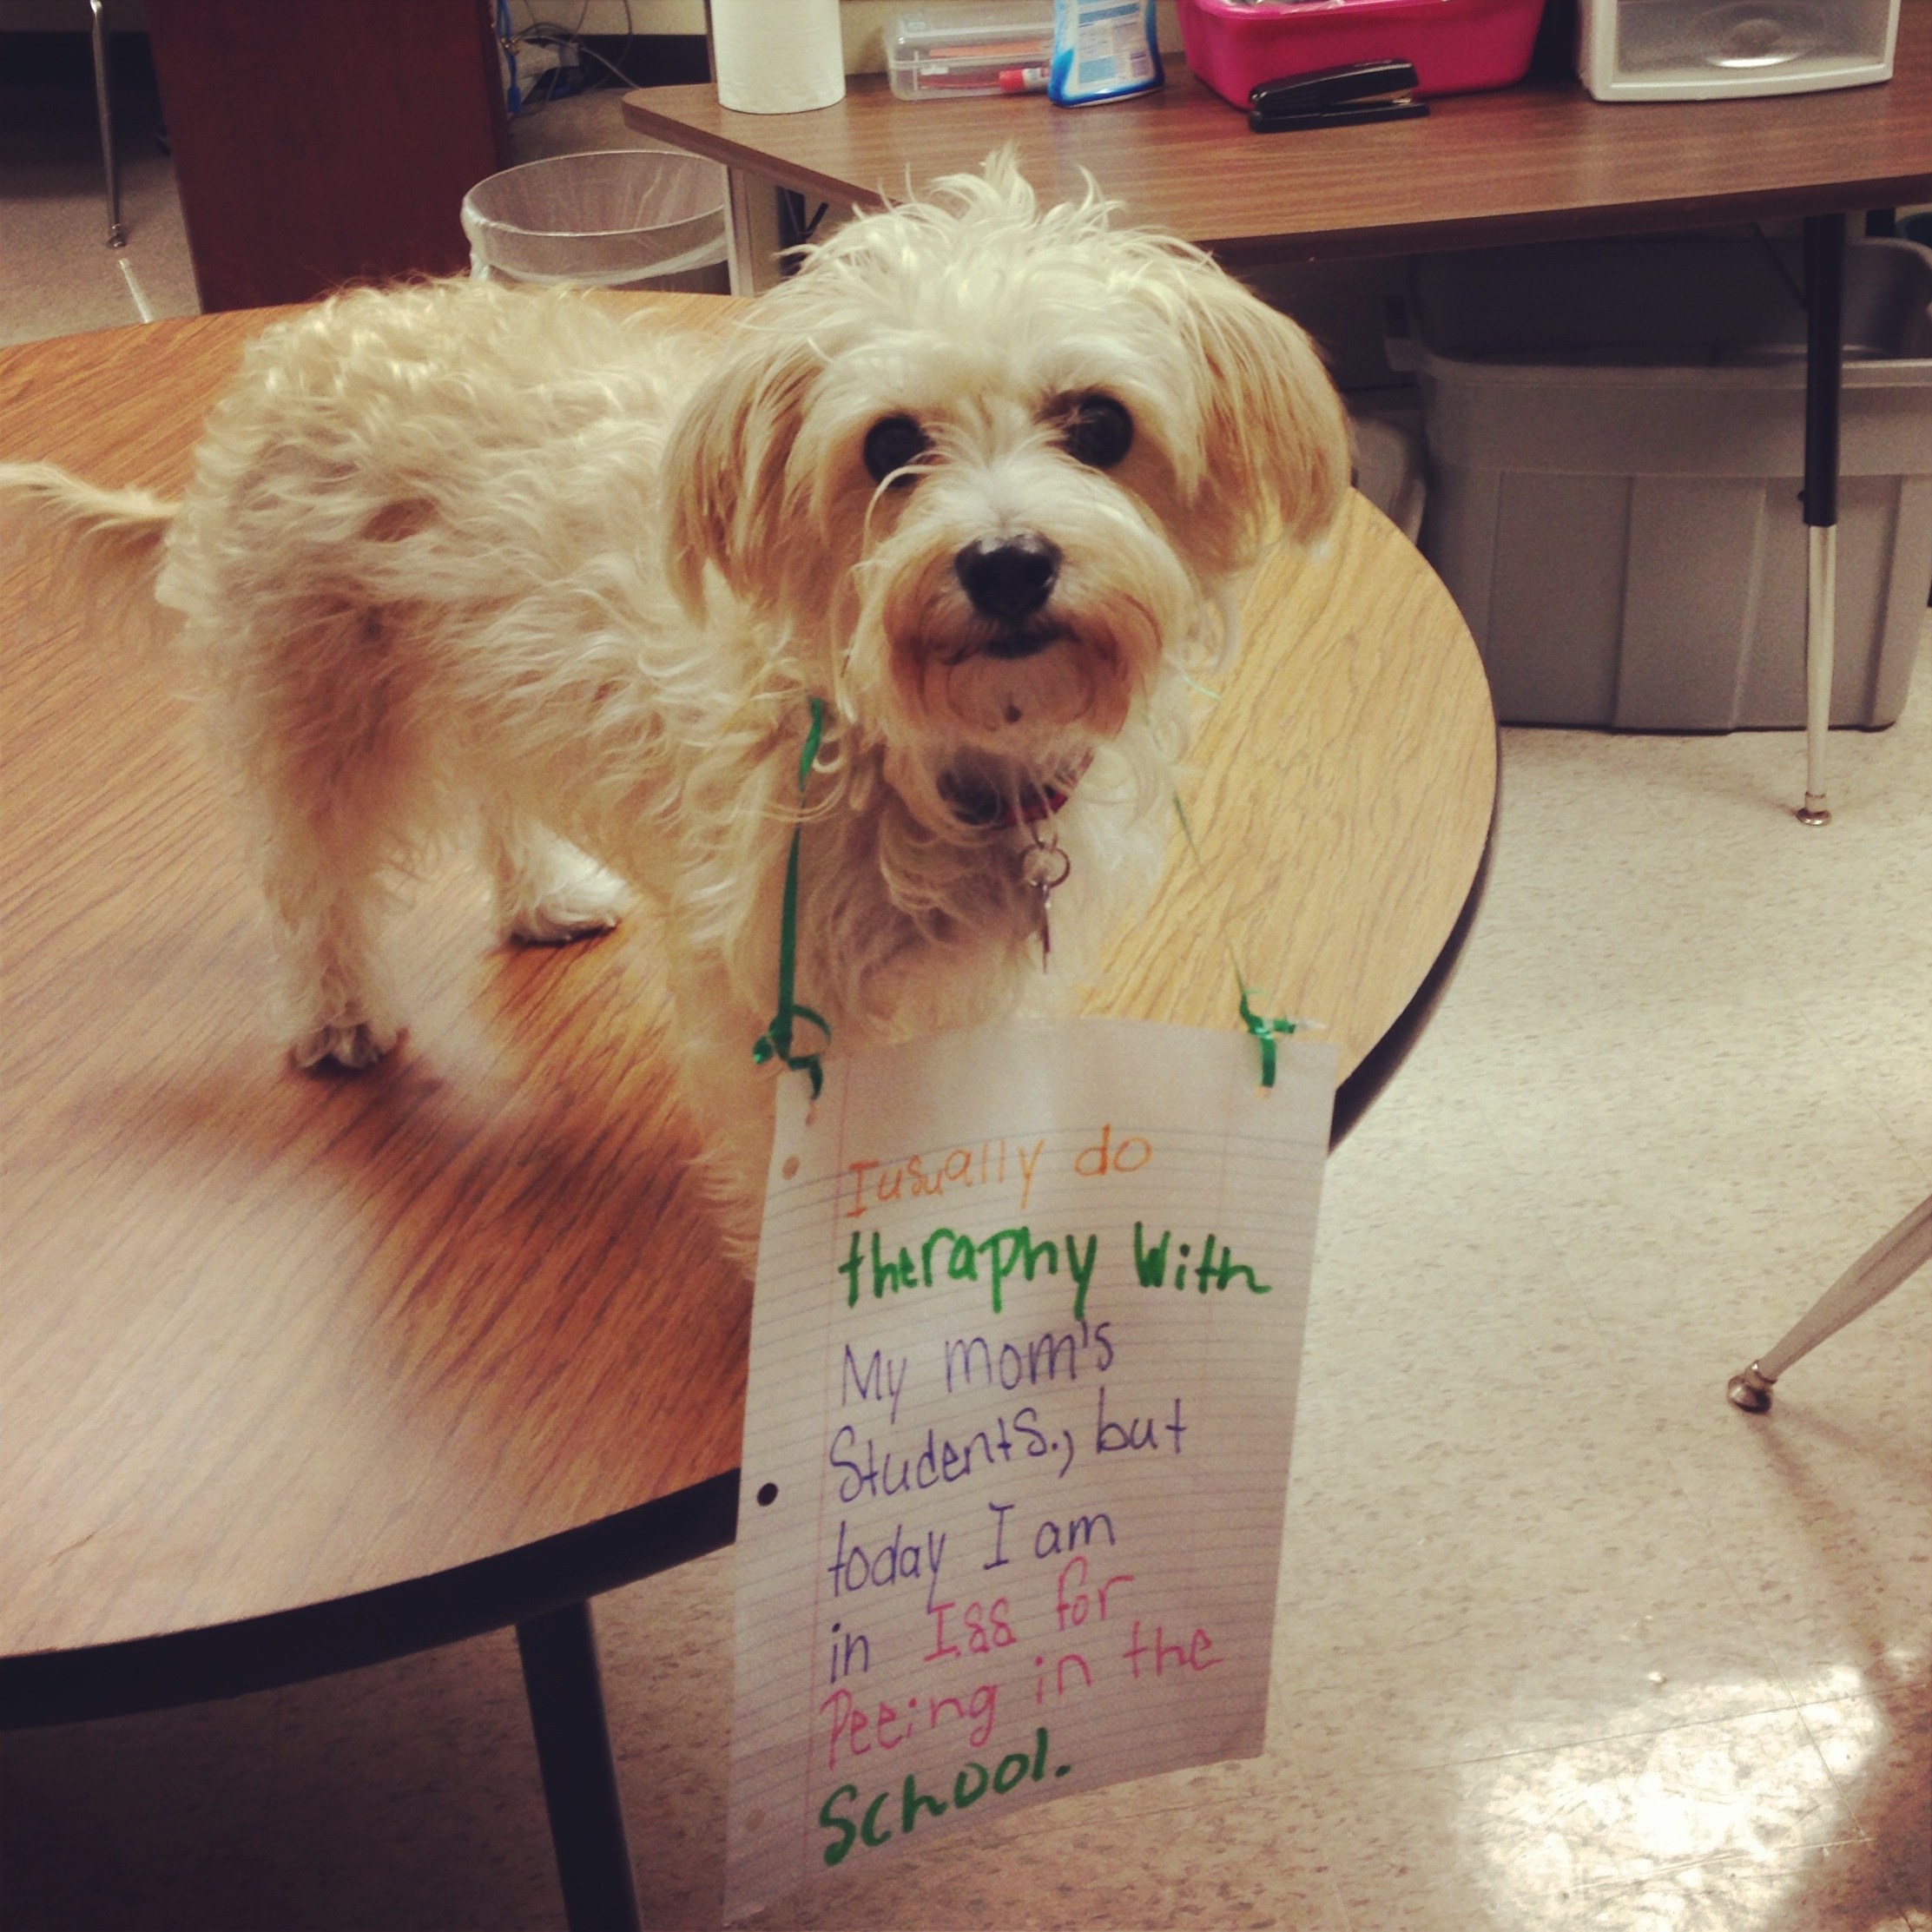 I usually do
theraphy With
My mom's
Students., but
today I am
in ISS for
Peeing in the
School.